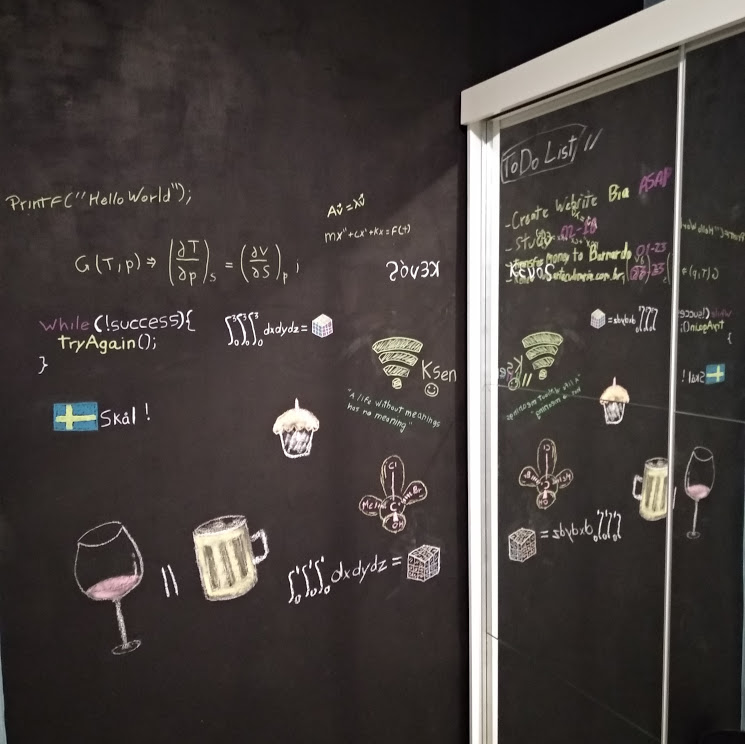 PrintF("Hello World");
Av̂=λv̂
mx"+cx'+kx=F(t)
G(T,p) ⇒ (∂T/∂p)s = (∂V/∂S)p ;
while (!success){
tryAgain();
}
∫₀³∫₀³∫₀³ dxdydz =
Ksen
"A life without meanings
has no meaning"
Skål !
Cl
Br
C
OH
||
∫₀¹∫₀¹∫₀¹ dxdydz =
ToDo List //
- Create Website Bia ASAP
- Study
Transfer money to Bernardo